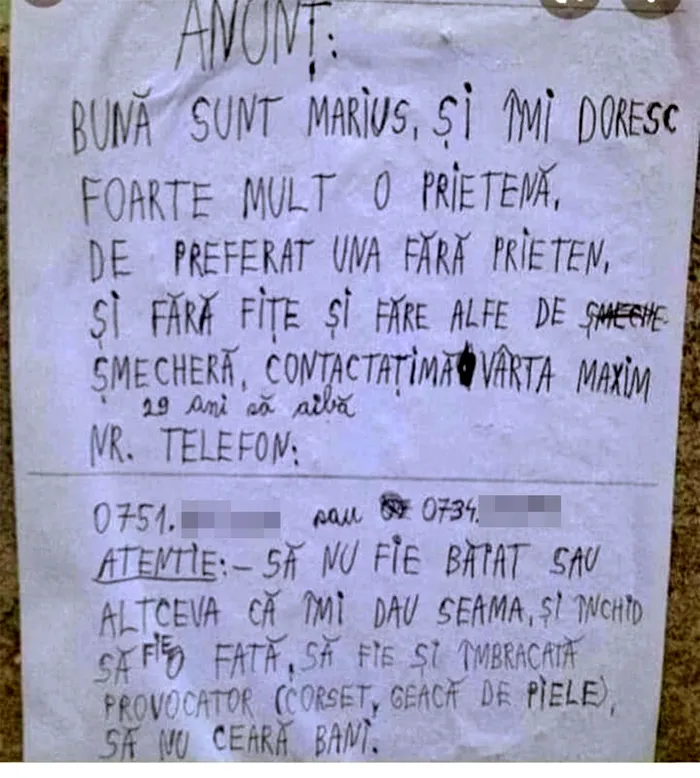 ANUNȚ:
BUNĂ SUNT MARIUS, ȘI ÎMI DORESC
FOARTE MULT O PRIETENĂ,
DE PREFERAT UNA FĂRĂ PRIETEN,
ȘI FĂRĂ FIȚE ȘI FĂRE ALFE DE ȘMECHE
ȘMECHERĂ, CONȚACTAȚIMĂ VÂRTA MAXIM
29 ani să aibă
NR. TELEFON:
0751. sau 0734.
ATENTIE:- SĂ NU FIE BĂȚAT SAU
ALTCEVA CĂ ÎMI DAU SEAMA, ȘI ÎNCHID
SĂ FIE O FATĂ, SĂ FIE ȘI ÎMBRACATĂ
PROVOCATOR (CORSET, GEACĂ DE PIELE),
SĂ NU CEARĂ BANI.